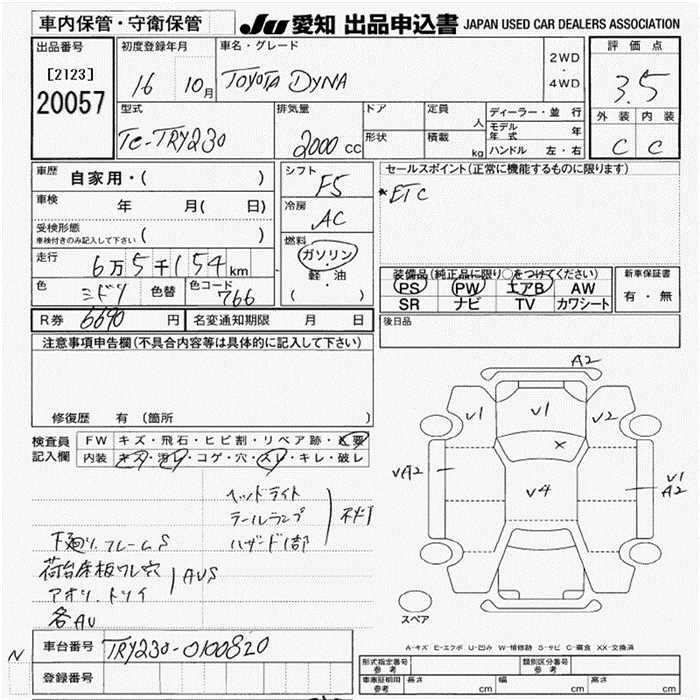 車内保管・守衛保管
JU 愛知 出品申込書 JAPAN USED CAR DEALERS ASSOCIATION
出品番号
[2123]
20057
初度登録年月
16 10月
車名・グレード
TOYOTA DYNA
2WD
・
4WD
評価点
3.5
外装 内装
C C
型式
TC-TRY230
排気量
2000 cc
ドア
形状
定員 人
積載 kg
ディーラー・並行
モデル年式 年
ハンドル 左・右
車歴 自家用・( )
車検 年 月( 日)
受検形態
車検付きのみ記入して下さい ( )
走行 6万5千154km
色 ミドリ 色替 色コード 766
シフト
F5
冷房
AC
燃料
ガソリン
・
軽・油
( )
セールスポイント(正常に機能するものに限ります)
*ETC
装備品(純正品に限り○をつけてください)
PS PW エアB AW
SR ナビ TV カワシート
新車保証書
有・無
R券 6690 円 名変通知期限 月 日
後日品
注意事項申告欄(不具合内容等は具体的に記入して下さい)
修復歴 有 (箇所 )
検査員記入欄
FW キズ・飛石・ヒビ割・リペア跡・X要
内装 キズ・汚レ・コゲ・穴・スレ・キレ・破レ
ヘッドライト
テールランプ
ハザード1部
下廻り.フレームS
荷台床板ワレ穴
AUS
各AU
A2
V1
V1
V2
X
VA2
V4
V1
A2
スペア
N
車台番号 TRY230-0100820
登録番号
A-キズ E-エクボ U-凹み W-補修跡 S-サビ C-腐食 XX-交換済
形式指定番号
参考
類別区分番号
参考
車庫証明用
参考
長さ cm 幅 cm 高さ cm